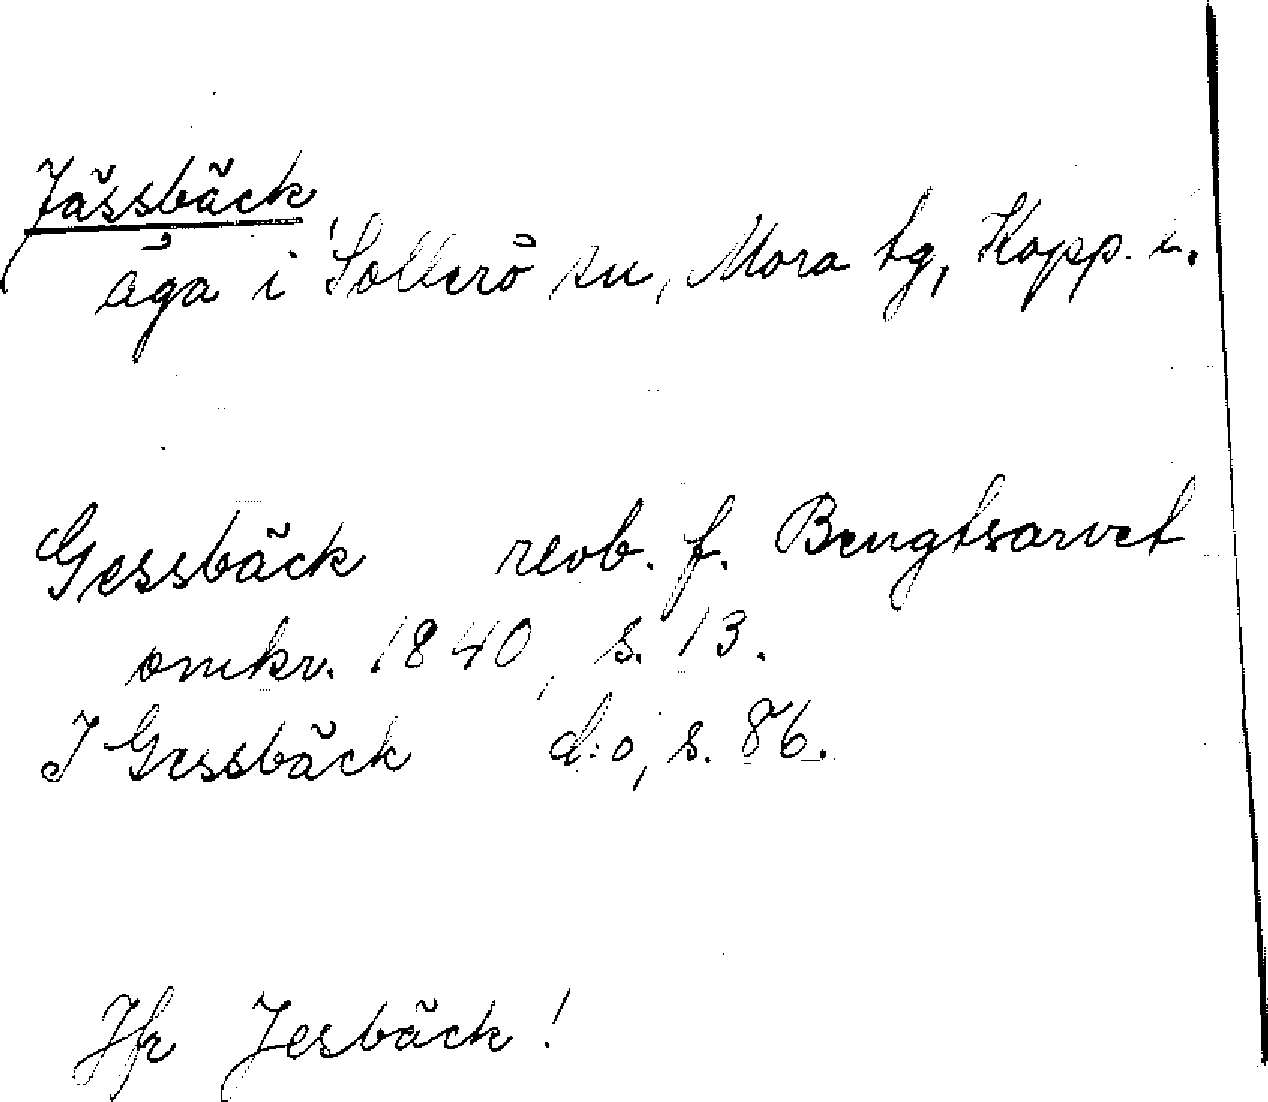 Jässbäck
äga i Sollerö sn, Mora tg, Kopp. l.
Gessbäck revb. f. Bengtsarvet
omkr. 1840, s. 13.
I Gessbäck d:o, s. 86.
Jfr Jesbäck!